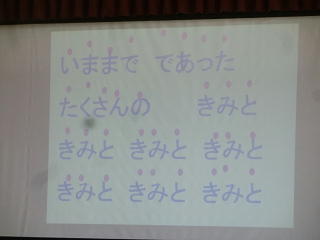 いままで であった
たくさんの きみと
きみと きみと きみと
きみと きみと きみと